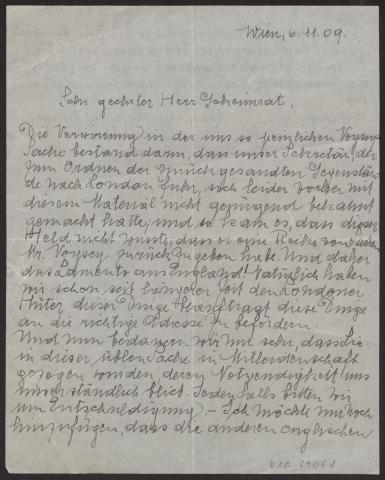 Wien, 6. 11. 09.
Sehr geehrter Herr Geheimrat,
Die Verwirrung in der uns so peinlichen Voysey
Sache bestand darin, dass unser Sekretär, der
zum Ordnen der zurückgesandten Gegenstän-
de nach London fuhr, sich leider vorher mit
diesem Material nicht genügend bekannt
gemacht hatte; und so kam es, dass dieser
Held nicht wusste, dass er eine Reihe von
Mr. Voysey zurückzugeben habe. Und daher
das Lamento aus England! Natürlich haben
wir schon seit längerer Zeit den Londoner
Hüter dieser Dinge beauftragt diese Dinge
an die richtige Adresse zu befördern.
Und nun bedauern wir nur sehr, dass Sie
in dieser üblen Sache in Mitleidenschaft
gezogen wurden deren Notwendigkeit uns
unverständlich blieb. Jedenfalls bitten wir
um Entschuldigung. – Ich möchte nur noch
hinzufügen, dass die anderen englischen